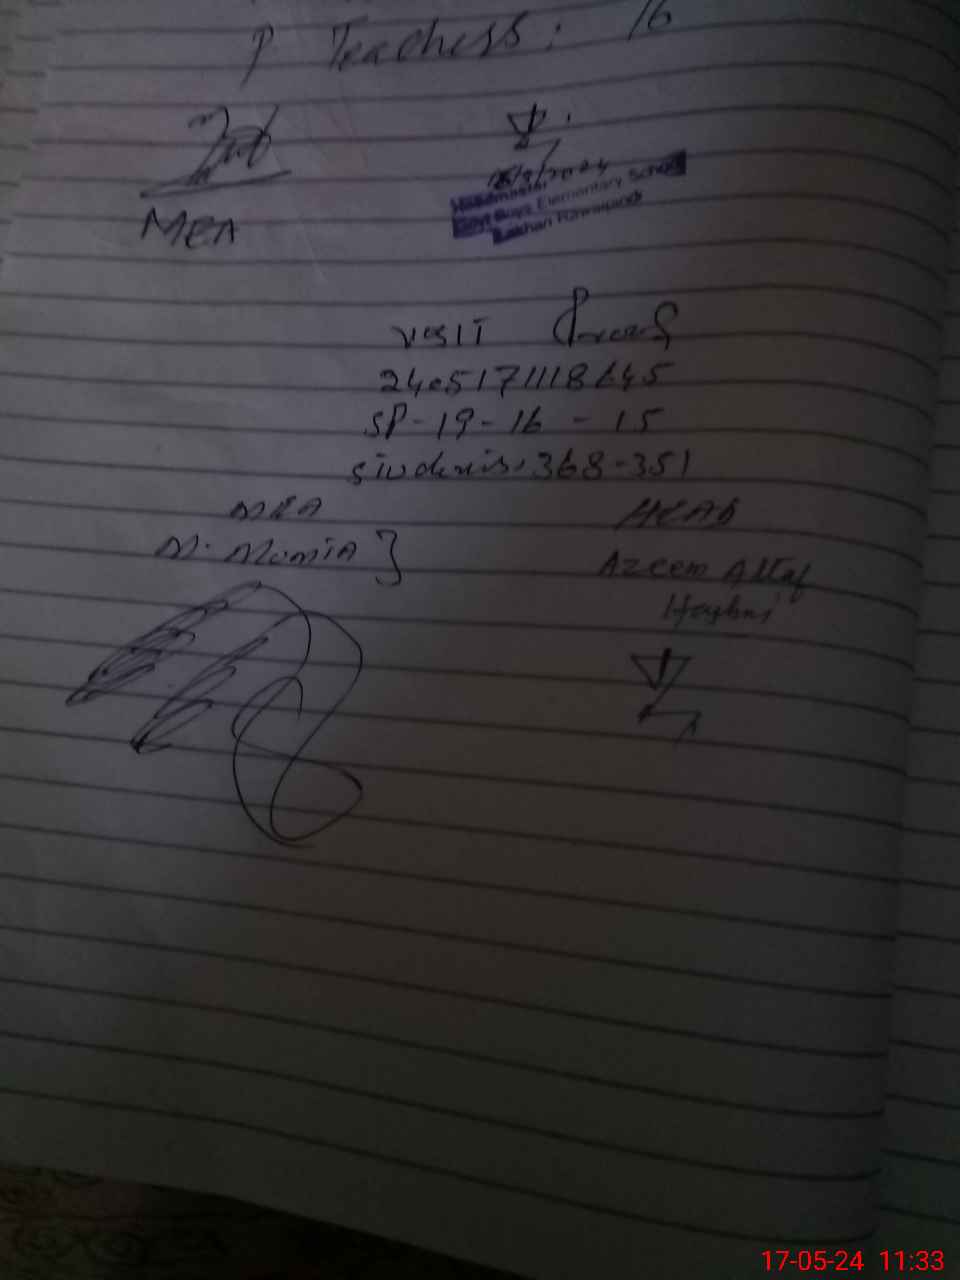 P Teachers: 16
MEA
Headmaster
Govt Boys Elementary School
Lakhan Rawalpindi
Visit Proof
2405171118645
SP-19-16-15
Students: 368-351
MEA
HEAD
M.
Azeem Altaf
Hashmi
17-05-24 11:33